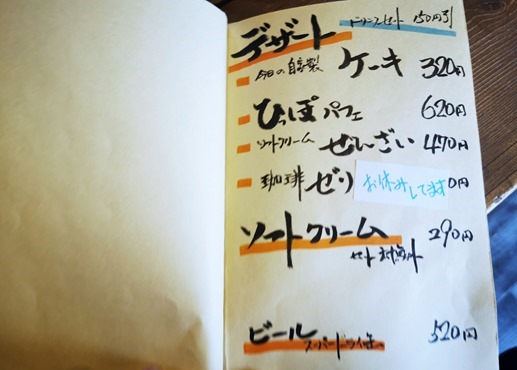 デザート ドリンクセット 150円引
今日の自家製 ケーキ 320円
ひっぽパフェ 620円
ソフトクリーム ぜんざい 470円
珈琲ゼリ お休みしてます 0円
ソフトクリーム 290円
セット対象外
ビール 520円
スーパードライ缶